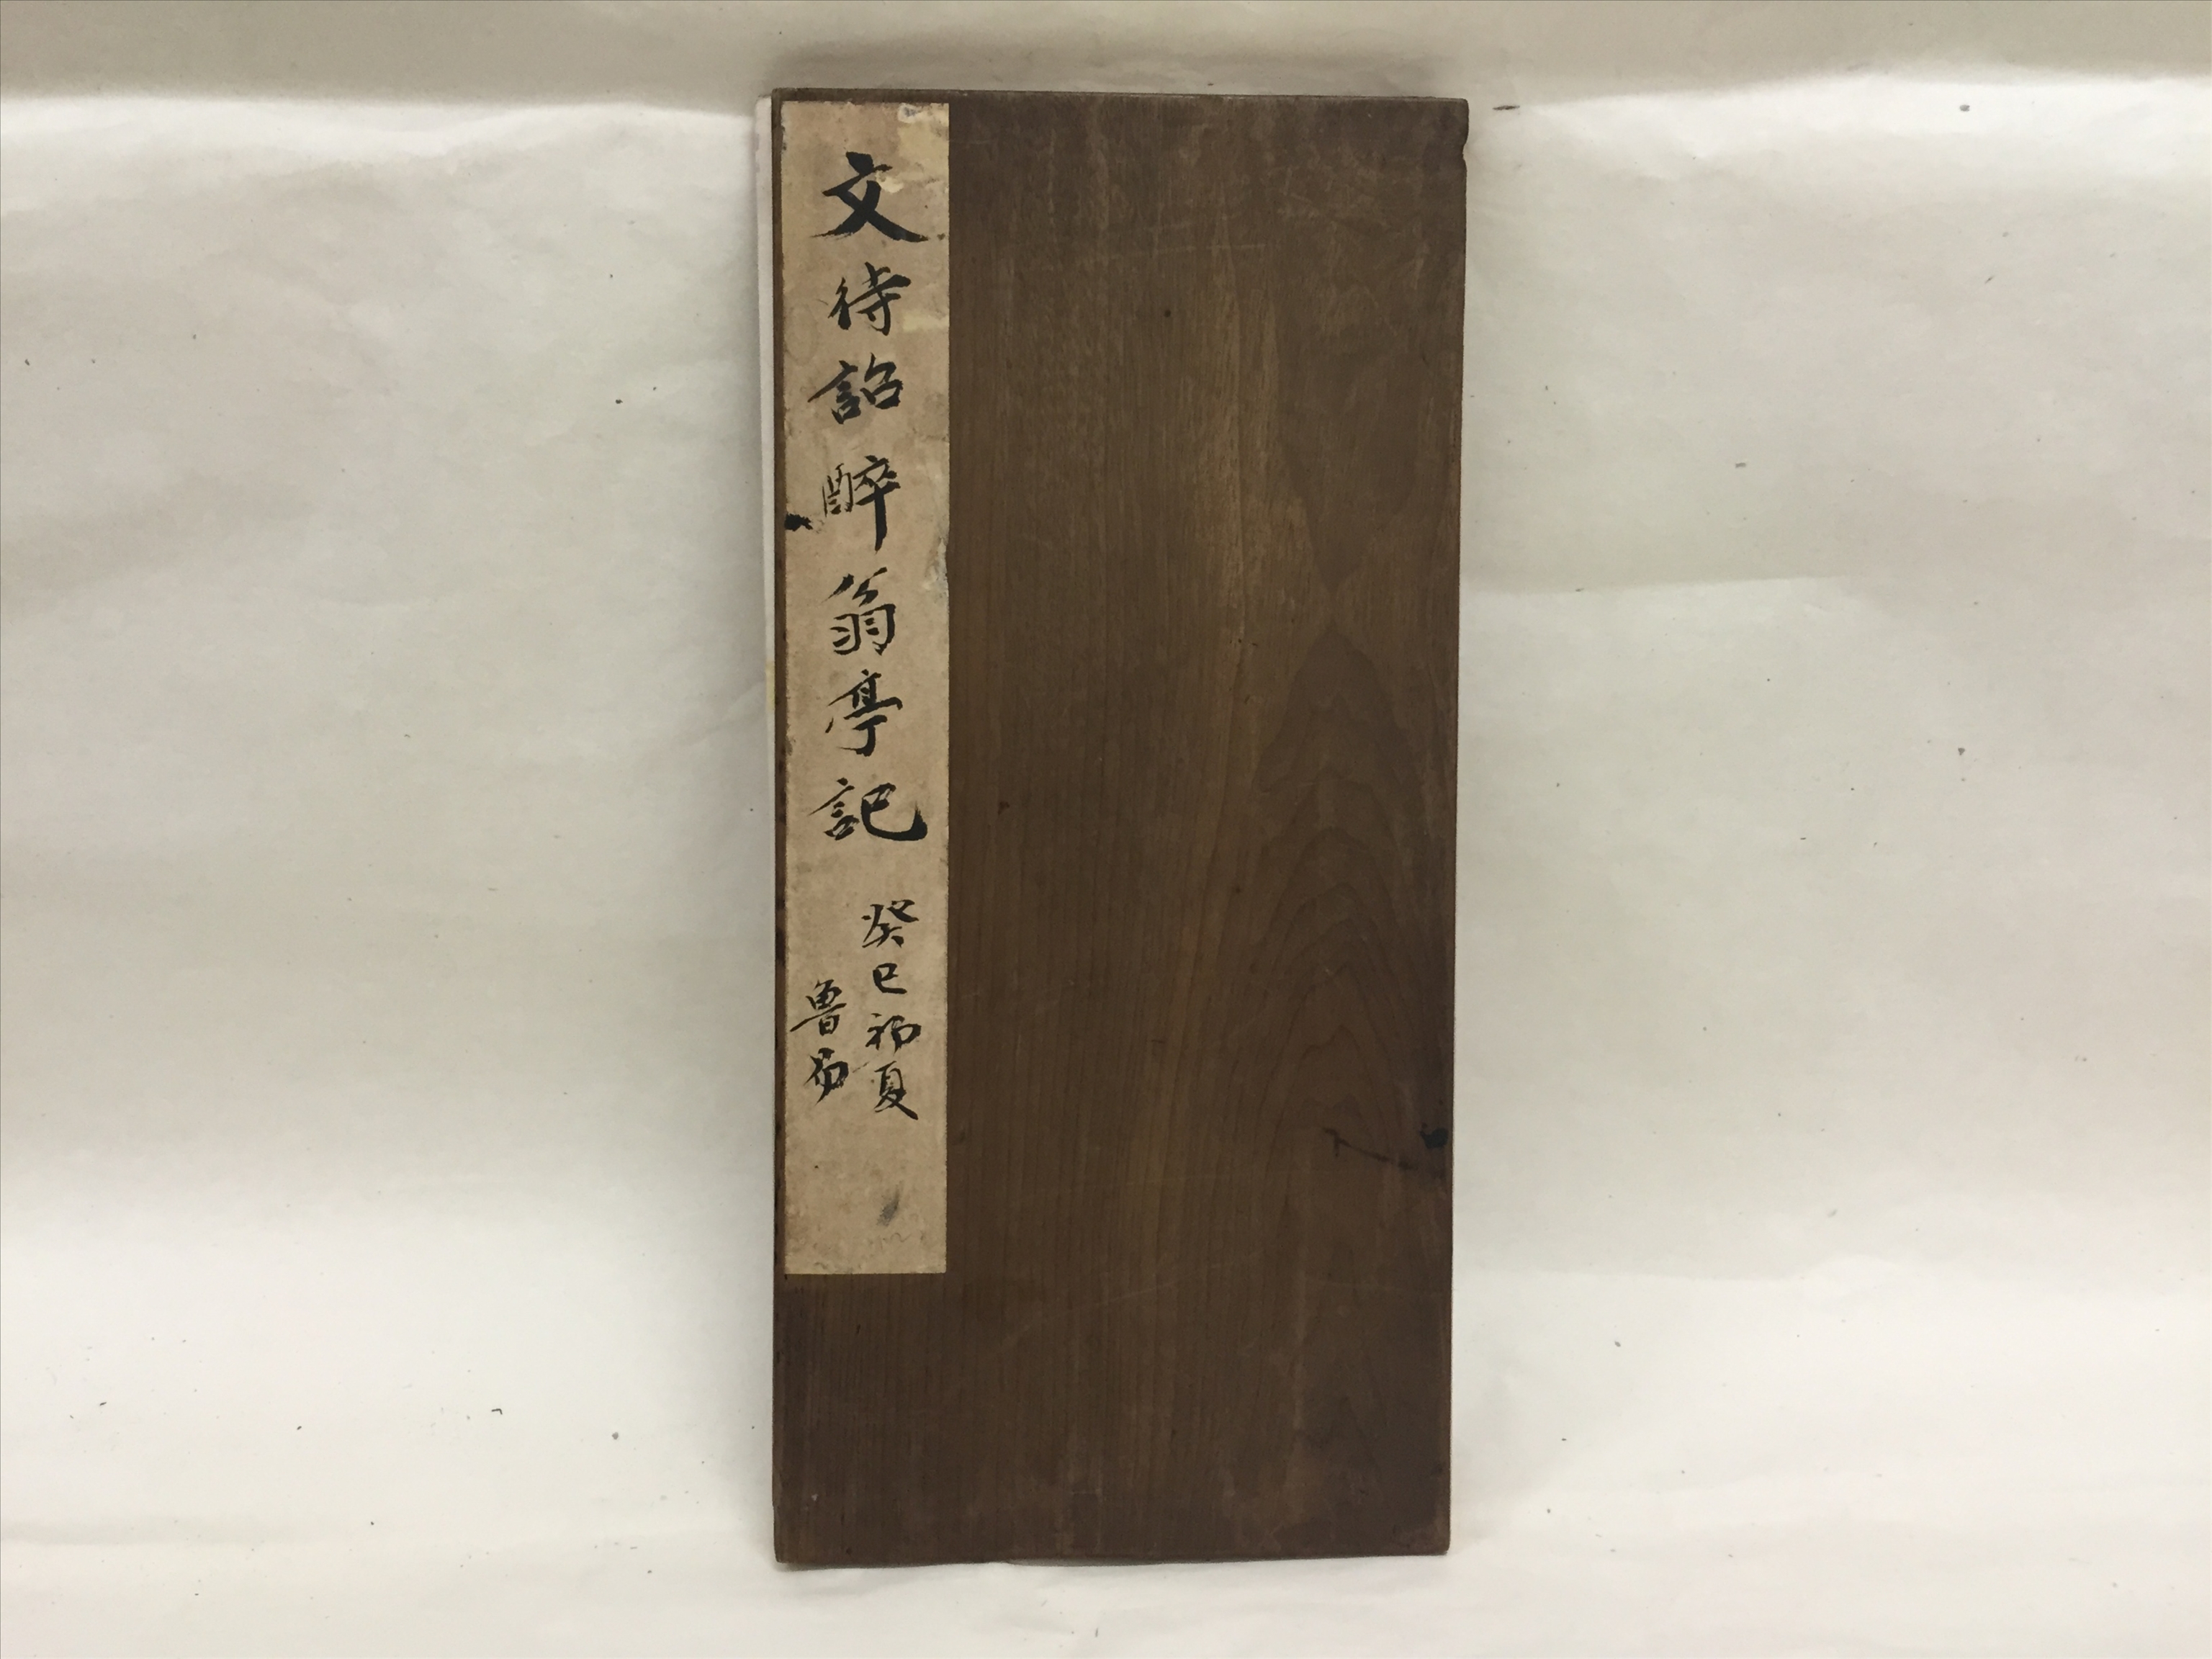 文待詔醉翁亭記
癸巳初夏
魯